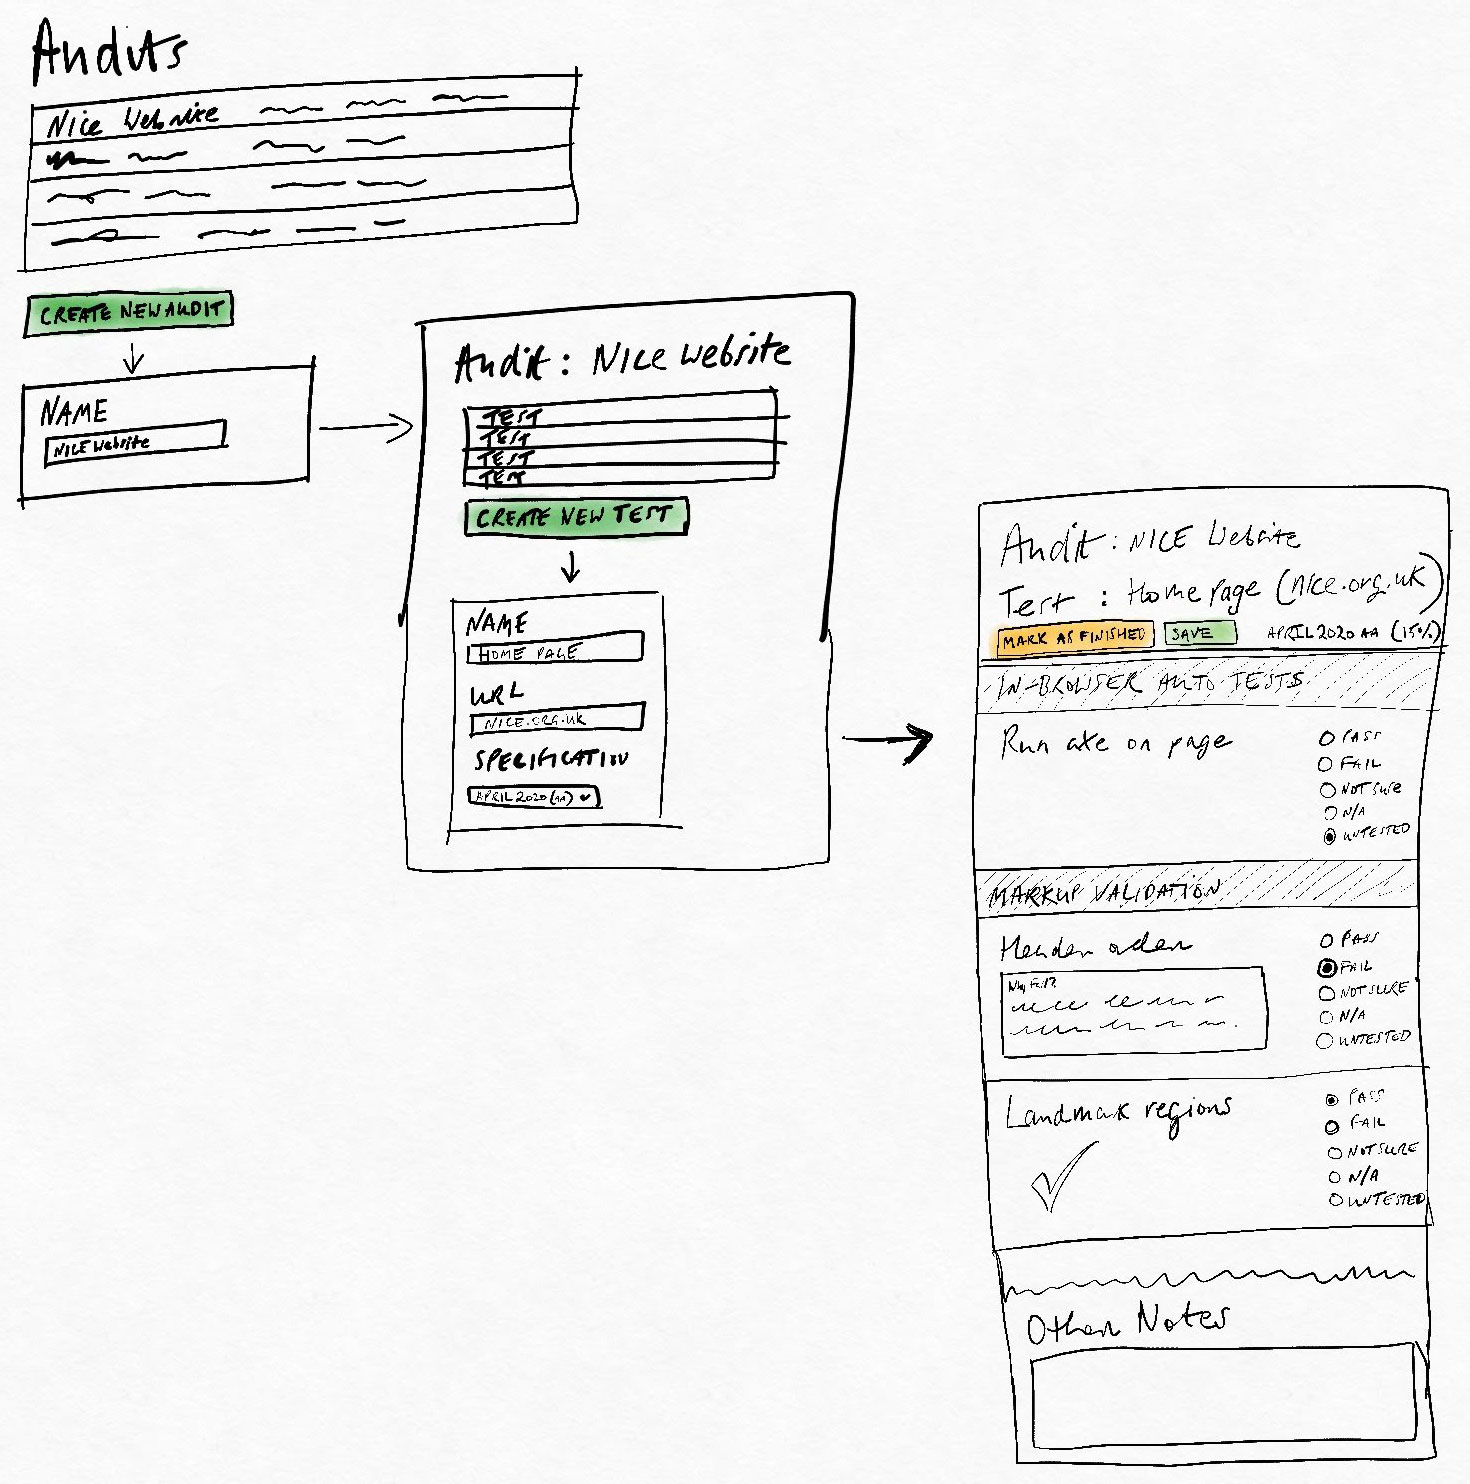 Audits
Nice Website
CREATE NEW AUDIT
NAME
NICE Website
Audit: NICE Website
TEST
TEST
TEST
TEST
CREATE NEW TEST
NAME
HOME PAGE
URL
NICE.ORG.UK
SPECIFICATION
APRIL 2020 (AA)
Audit: NICE Website
Test : Home page (nice.org.uk)
MARK AS FINISHED
SAVE
APRIL 2020 AA (15%)
IN-BROWSER AUTO TESTS
Run axe on page
PASS
FAIL
NOT SURE
N/A
UNTESTED
MARKUP VALIDATION
Header order
Why Fail?
PASS
FAIL
NOT SURE
N/A
UNTESTED
Landmark regions
PASS
FAIL
NOT SURE
N/A
UNTESTED
Other Notes